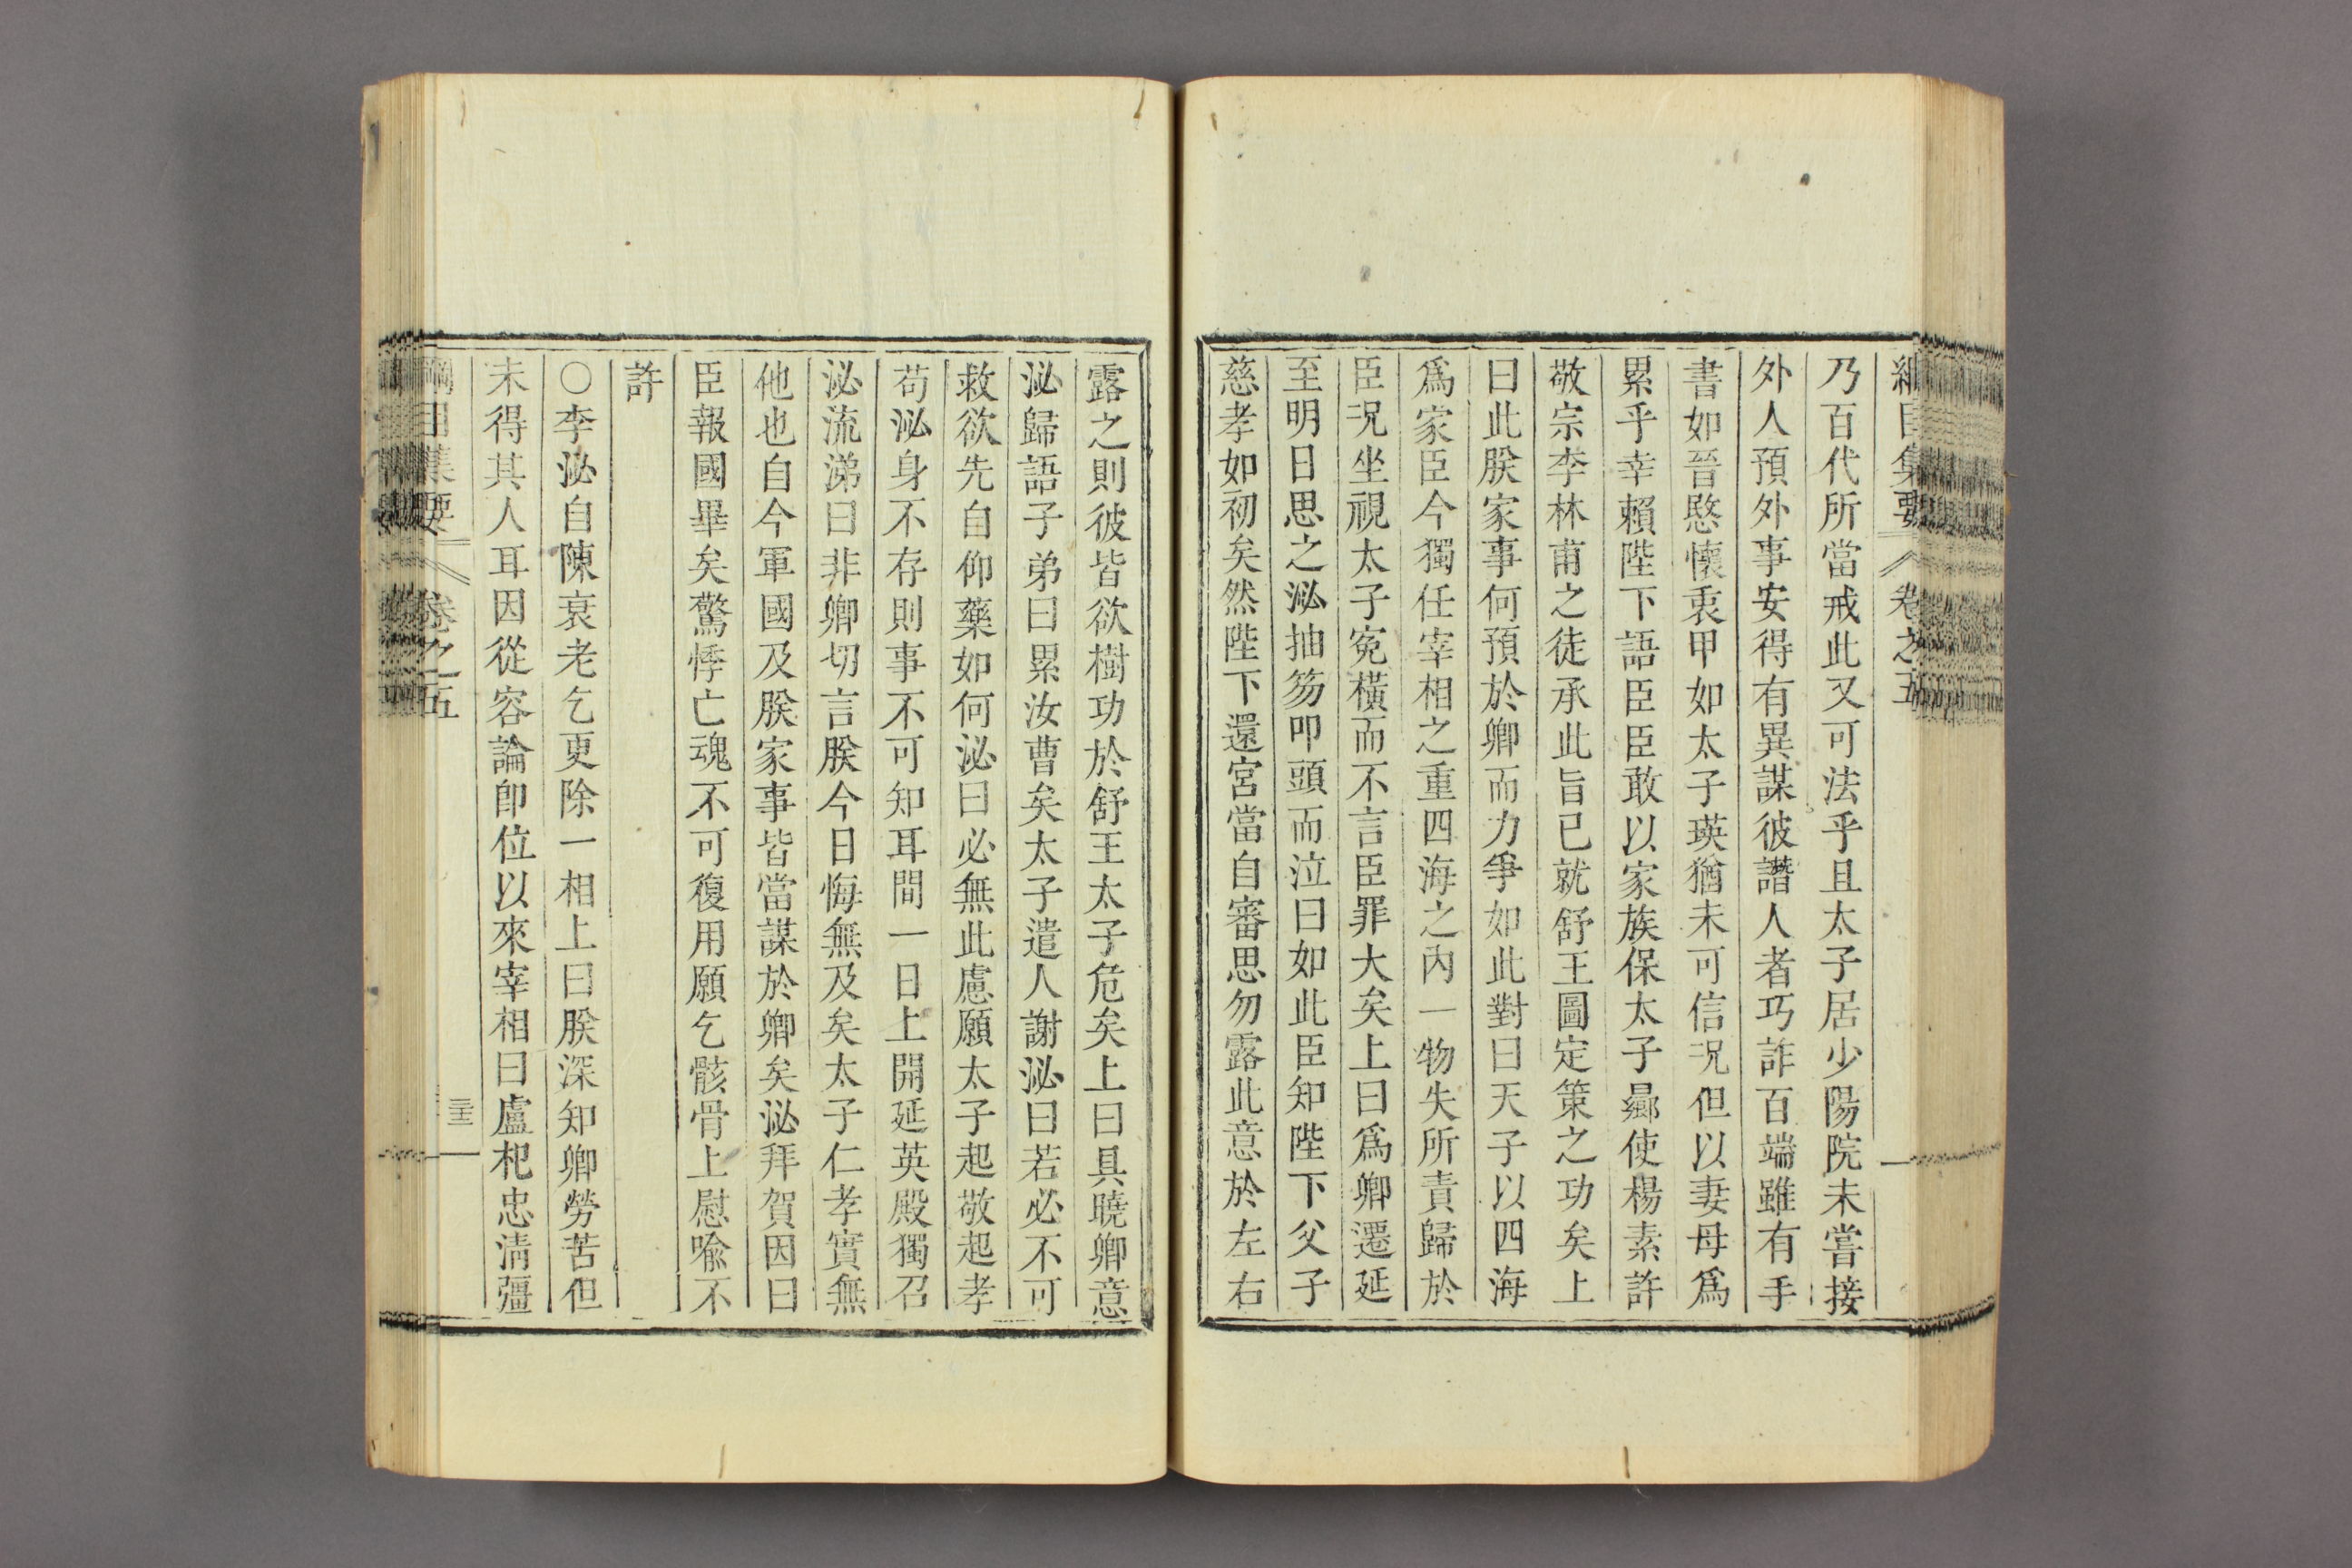 綱目集要 卷之五
乃百代所當戒此又可法乎且太子居少陽院未嘗接
外人預外事安得有異謀彼譖人者巧詐百端雖有手
書如晉愍懷衷甲如太子瑛猶未可信况但以妻母爲
累乎幸賴陛下語臣臣敢以家族保太子曏使楊素許
敬宗李林甫之徒承此旨已就舒王圖定策之功矣上
曰此朕家事何預於卿而力爭如此對曰天子以四海
爲家臣今獨任宰相之重四海之內一物失所責歸於
臣况坐視太子寃橫而不言臣罪大矣上曰爲卿遷延
至明日思之泌抽笏叩頭而泣曰如此臣知陛下父子
慈孝如初矣然陛下還宮當自審思勿露此意於左右
露之則彼皆欲樹功於舒王太子危矣上曰具曉卿意
泌歸語子弟曰累汝曹矣太子遣人謝泌曰若必不可
救欲先自仰藥如何泌曰必無此慮願太子起敬起孝
苟泌身不存則事不可知耳間一日上開延英殿獨召
泌流涕曰非卿切言朕今日悔無及矣太子仁孝實無
他也自今軍國及朕家事皆當謀於卿矣泌拜賀因曰
臣報國畢矣驚悸亡魂不可復用願乞骸骨上慰喩不
許
○李泌自陳衰老乞更除一相上曰朕深知卿勞苦但
未得其人耳因從容論卽位以來宰相曰盧杞忠淸彊
綱目集要 卷之五